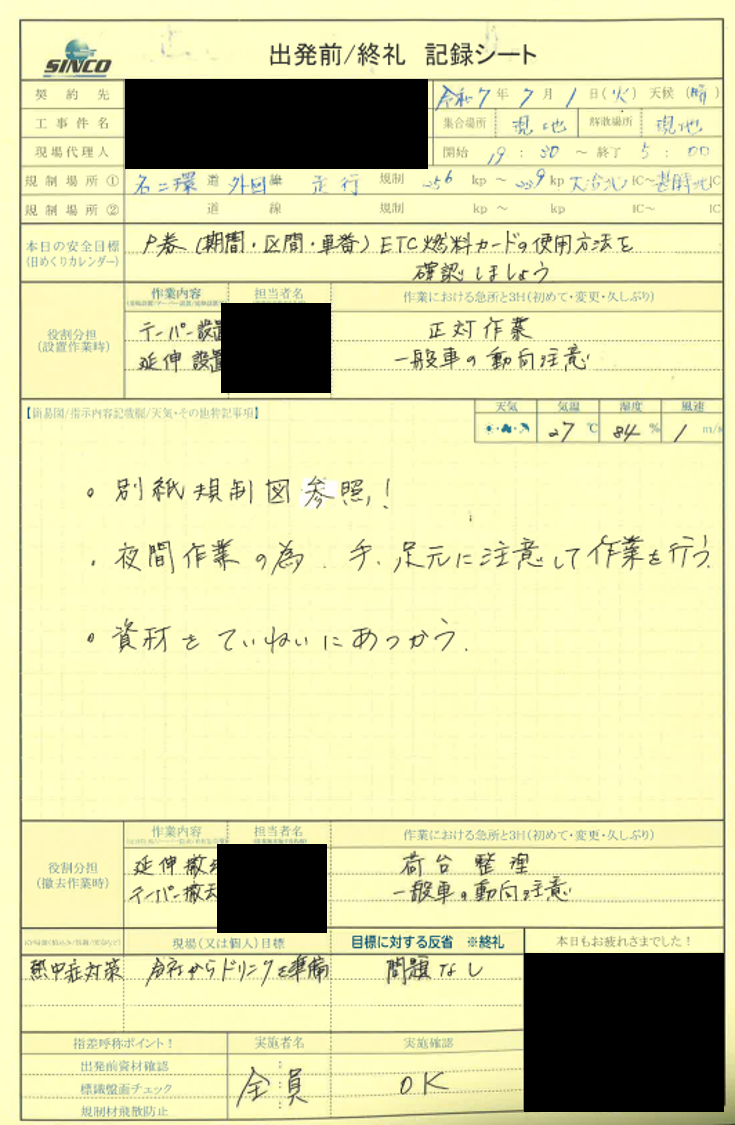 SINCO
出発前/終礼 記録シート
契約先
令和7年7月1日(火) 天候(晴)
工事件名
集合場所 現地 解散場所 現地
現場代理人
開始 19:30 ~ 終了 5:00
規制場所① 名二環 道 外回 線 走行 規制 kp ~ kp 大治北IC~甚目寺北IC
規制場所② 道 線 規制 kp ~ kp IC~ IC
本日の安全目標
(日めくりカレンダー)
P券(期間・区間・車番)ETC燃料カードの使用方法を
確認しましょう
役割分担
(設置作業時)
作業内容 担当者名 作業における急所と3H(初めて・変更・久しぶり)
テーパー設置 正対作業
延伸設置 一般車の動向注意
【簡易図/指示内容記載欄/天気・その他特記事項】
天気 気温 湿度 風速
27℃ 84% 1m/s
。別紙規制図参照!
・夜間作業の為、手、足元に注意して作業を行う。
。資材をていねいにあつかう。
役割分担
(撤去作業時)
作業内容 担当者名 作業における急所と3H(初めて・変更・久しぶり)
延伸撤去 荷台整理
テーパー撤去 一般車の動向注意
現場(又は個人)目標 目標に対する反省 ※終礼 本日もお疲れさまでした!
熱中症対策 会社からドリンクを準備 問題なし
指差呼称ポイント! 実施者名 実施確認
出発前資材確認
標識盤面チェック 全員 OK
規制材飛散防止